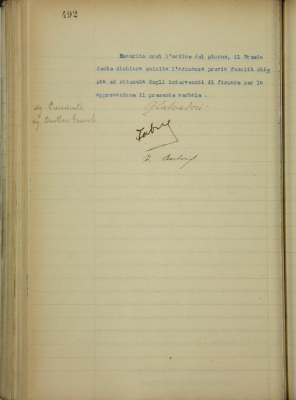 492
Esaurito così l'ordine del giorno, il Presi-
dente dichiara sciolta l'adunanza previa facoltà chie
sta ed ottenuta dagli intervenuti di firmare per la
approvazione il presente verbale.
Presidente